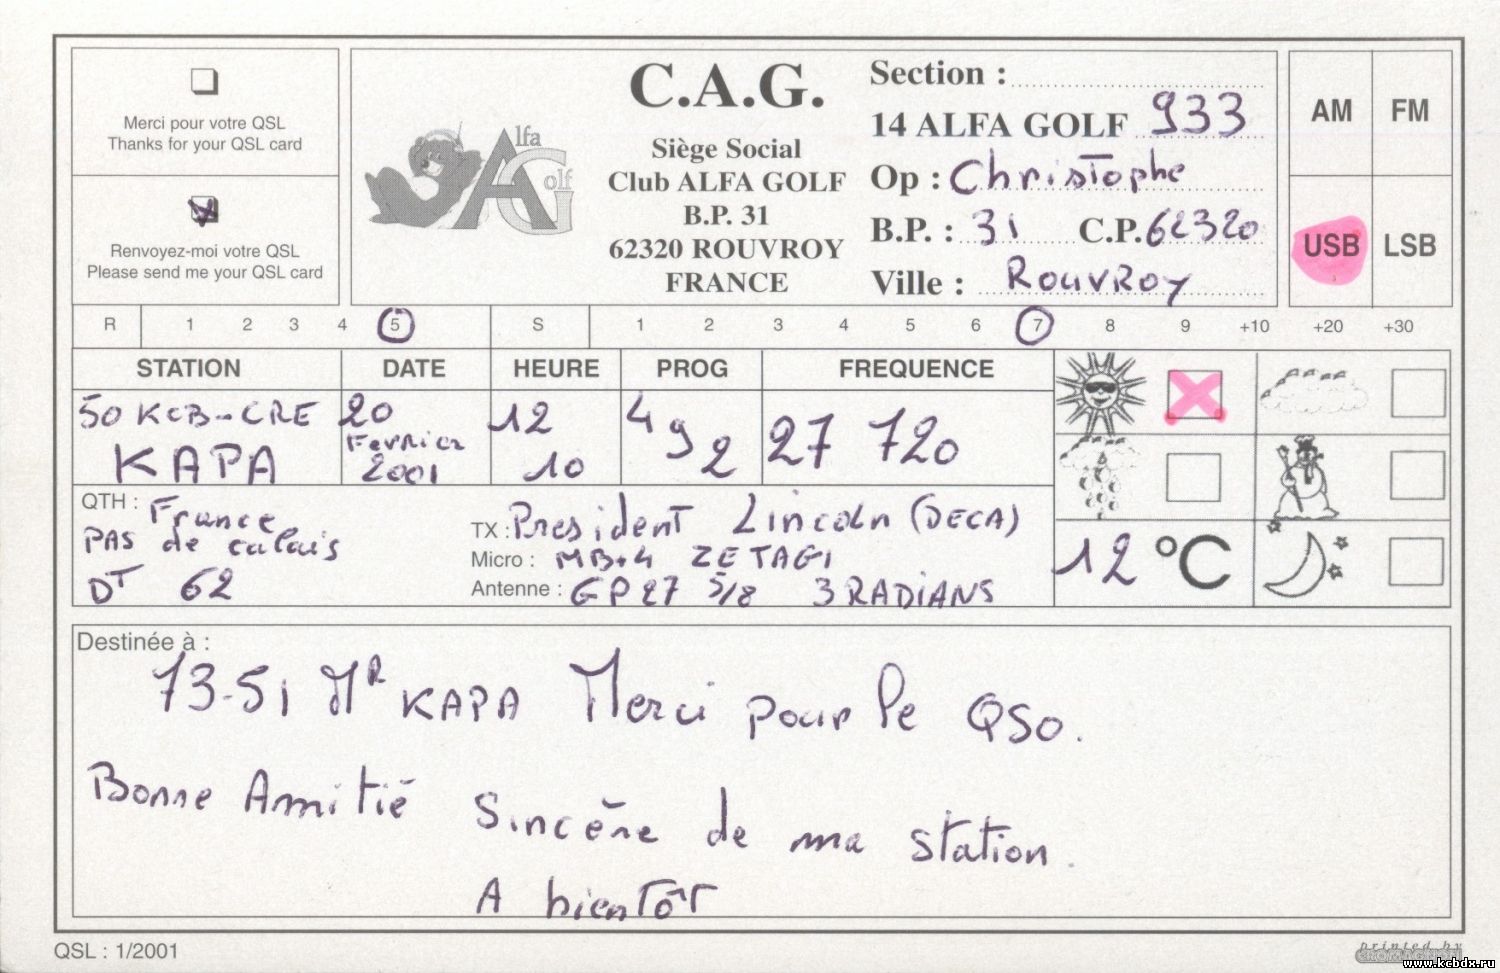 Merci pour votre QSL
Thanks for your QSL card
Renvoyez-moi votre QSL
Please send me your QSL card
Alfa
Golf
C.A.G.
Siège Social
Club ALFA GOLF
B.P. 31
62320 ROUVROY
FRANCE
Section :
14 ALFA GOLF 933
Op : Christophe
B.P. : 31 C.P. 62320
Ville : Rouvroy
AM FM
USB LSB
R 1 2 3 4 5 S 1 2 3 4 5 6 7 8 9 +10 +20 +30
STATION DATE HEURE PROG FREQUENCE
50 KCB-CRE KAPA
20 Fevrier 2001
12 10
492
27 720
QTH : France
PAS de calais
DT 62
TX : President Lincoln (DECA)
Micro : MB+4 ZETAGI
Antenne : GP27 5/8 3 RADIANS
12 °C
Destinée à :
73-51 Mr KAPA Merci pour le QSO.
Bonne Amitié Sincère de ma station.
A bientôt
QSL : 1/2001
printed by
www.kcbdx.ru